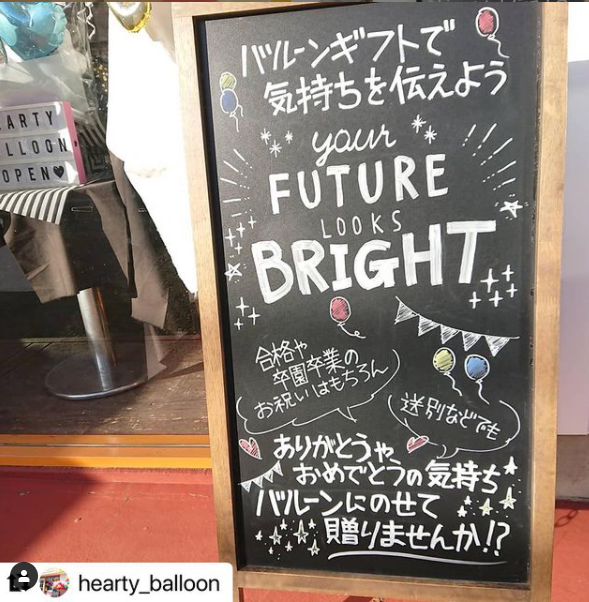 バルーンギフトで
気持ちを伝えよう
your
FUTURE
LOOKS
BRIGHT
合格や
卒園卒業の
お祝いはもちろん
送別などでも
ありがとうや、
おめでとうの気持ち
バルーンにのせて
贈りませんか!?
ARTY
LLOON
OPEN♥
hearty_balloon